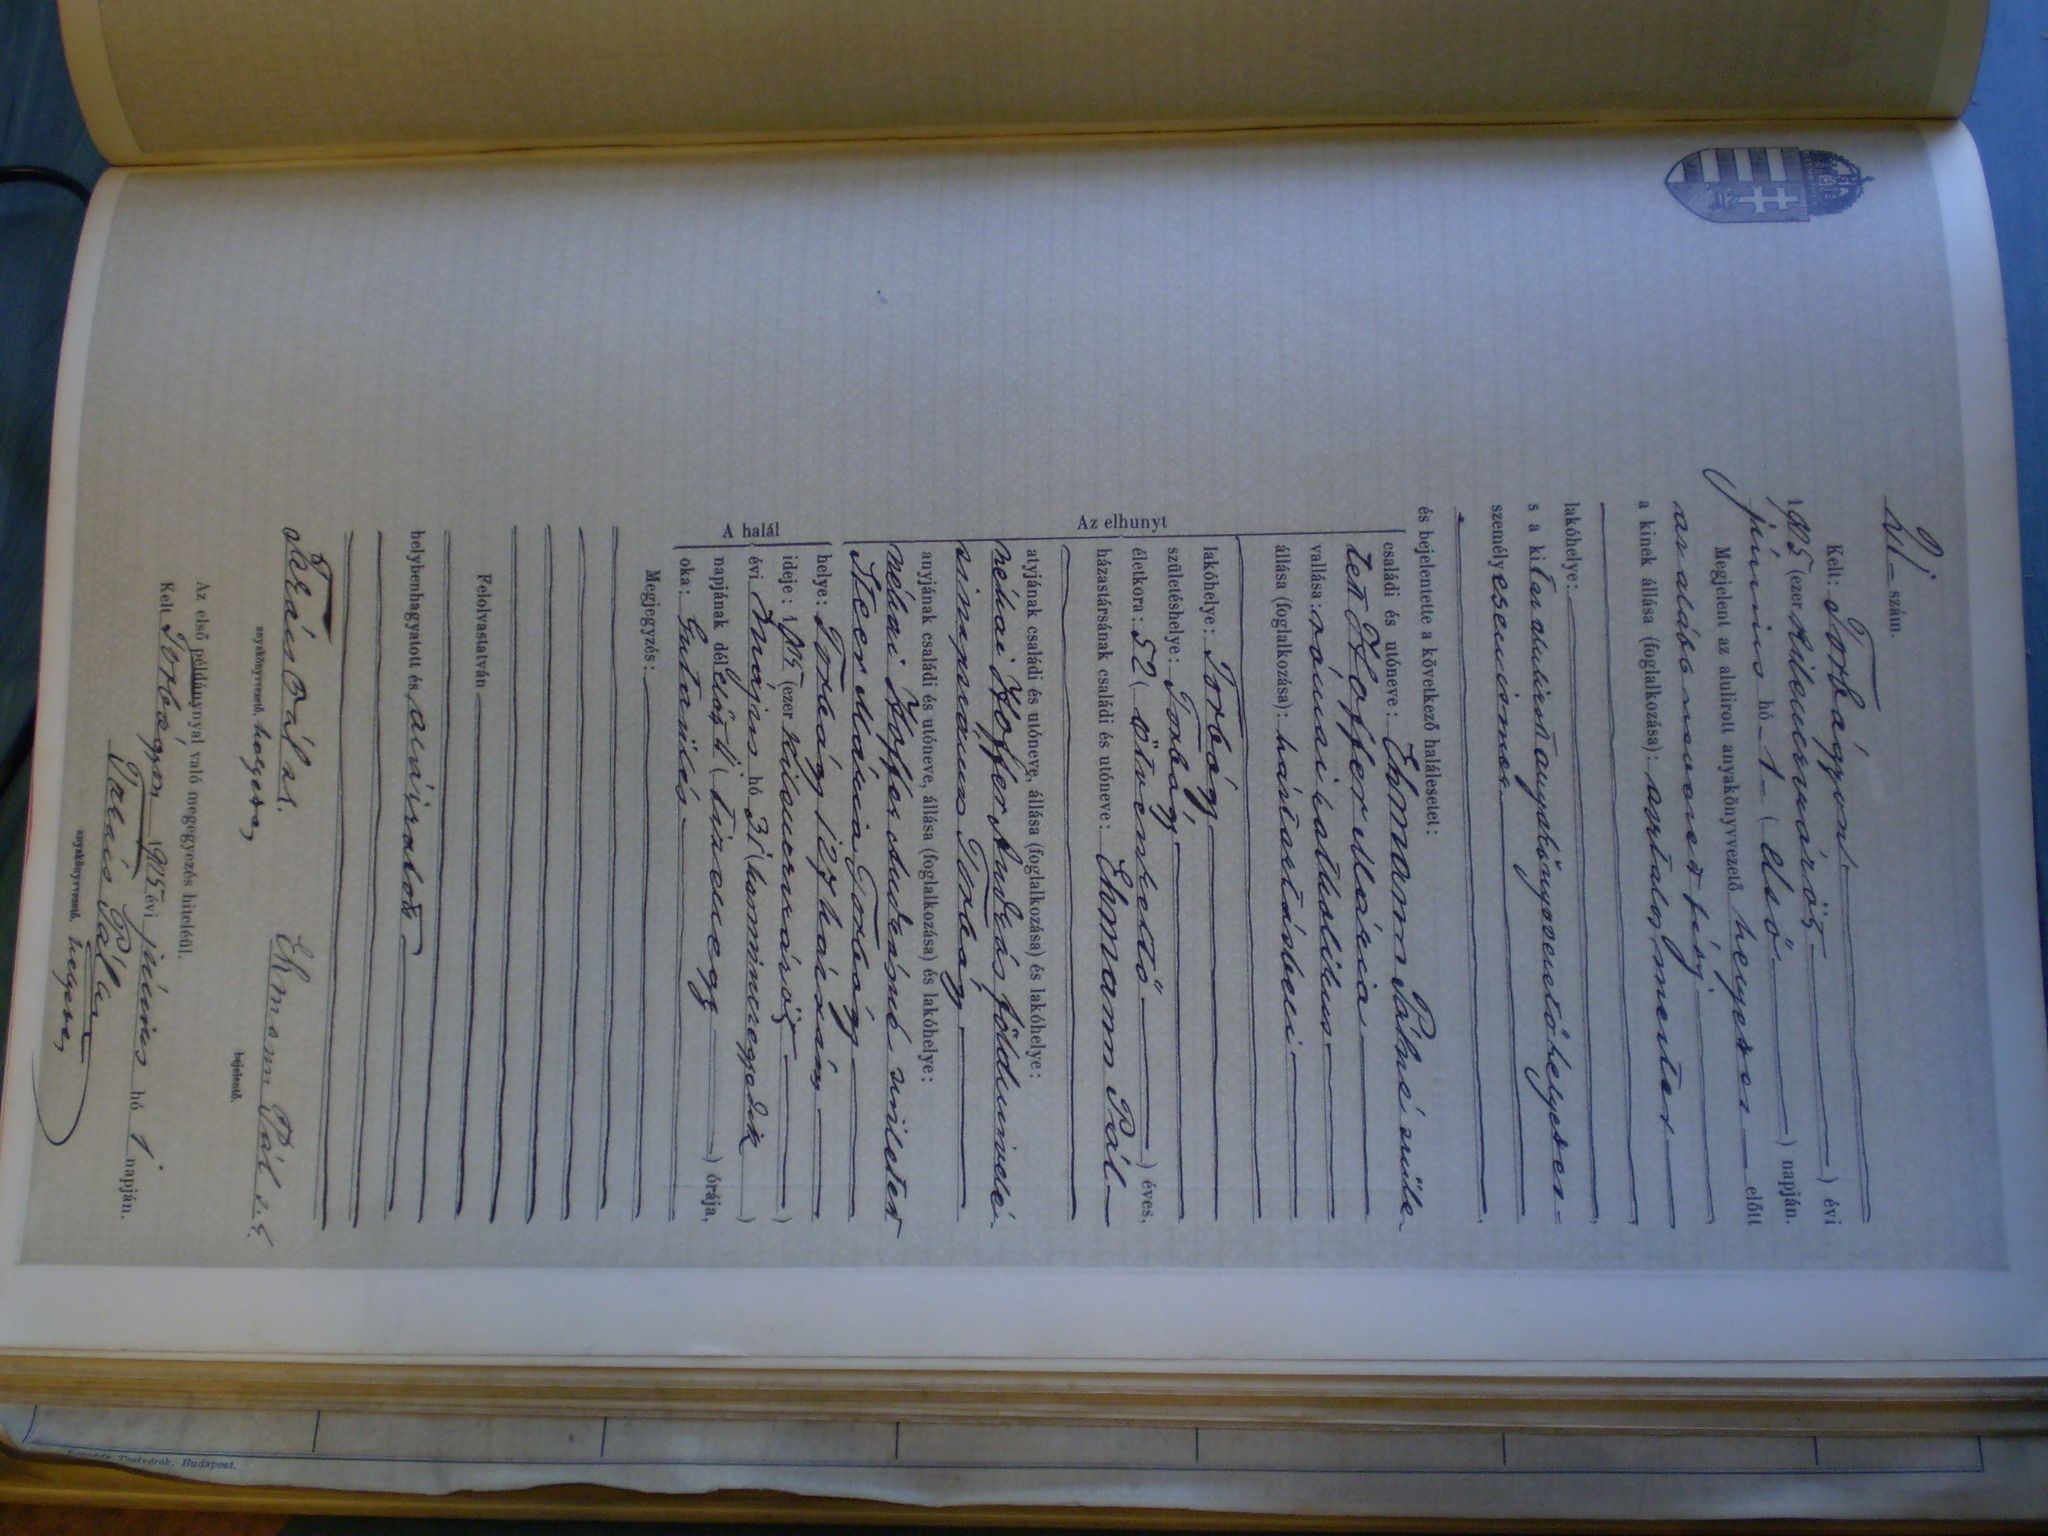 21 – szám.
Kelt: Torbágyon
1905 (ezerkilenczszázöt) évi
június hó 1 – (első) napján.
Megjelent az alulirott anyakönyvvezető helyettes előtt
az alább nevezett férj
a kinek állása (foglalkozása): asztalosmester
lakóhelye:
s a kit az alulirott anyakönyvvezető helyettes
személyesen ismer
és bejelentette a következő halálesetet:
Az elhunyt
családi és utóneve: Ehmann Pálné szüle-
tett Hoffer Mária
vallása: római katholikus
állása (foglalkozása): háztartásbeli
lakóhelye: Torbágy
születéshelye: Torbágy
életkora: 52 (ötvenkettő) éves.
házastársának családi és utóneve: Ehmann Pál
atyjának családi és utóneve, állása (foglalkozása) és lakóhelye:
néhai Hoffer András földmivelő
anyjának családi és utóneve, állása (foglalkozása) és lakóhelye:
néhai Hoffer Andrásné született
Mária Torbágy
A halál
helye: Torbágy
ideje: 1905 (ezerkilenczszázöt)
évi május hó 31 (harminczegyedik)
napjának délelőtt 11 (tizenegy) órája,
oka:
Megjegyzés:
Felolvastatván
helybenhagyatott és aláiratott
Pál
Ehmann Pál s.k.
anyakönyvvezető. helyettes,
bejelentő.
Az első példánynyal való megegyezés hiteléül.
Kelt Torbágyon 1905 évi június hó 1 napján.
Pál
anyakönyvvezető. helyettes,
Testvérek, Budapest.